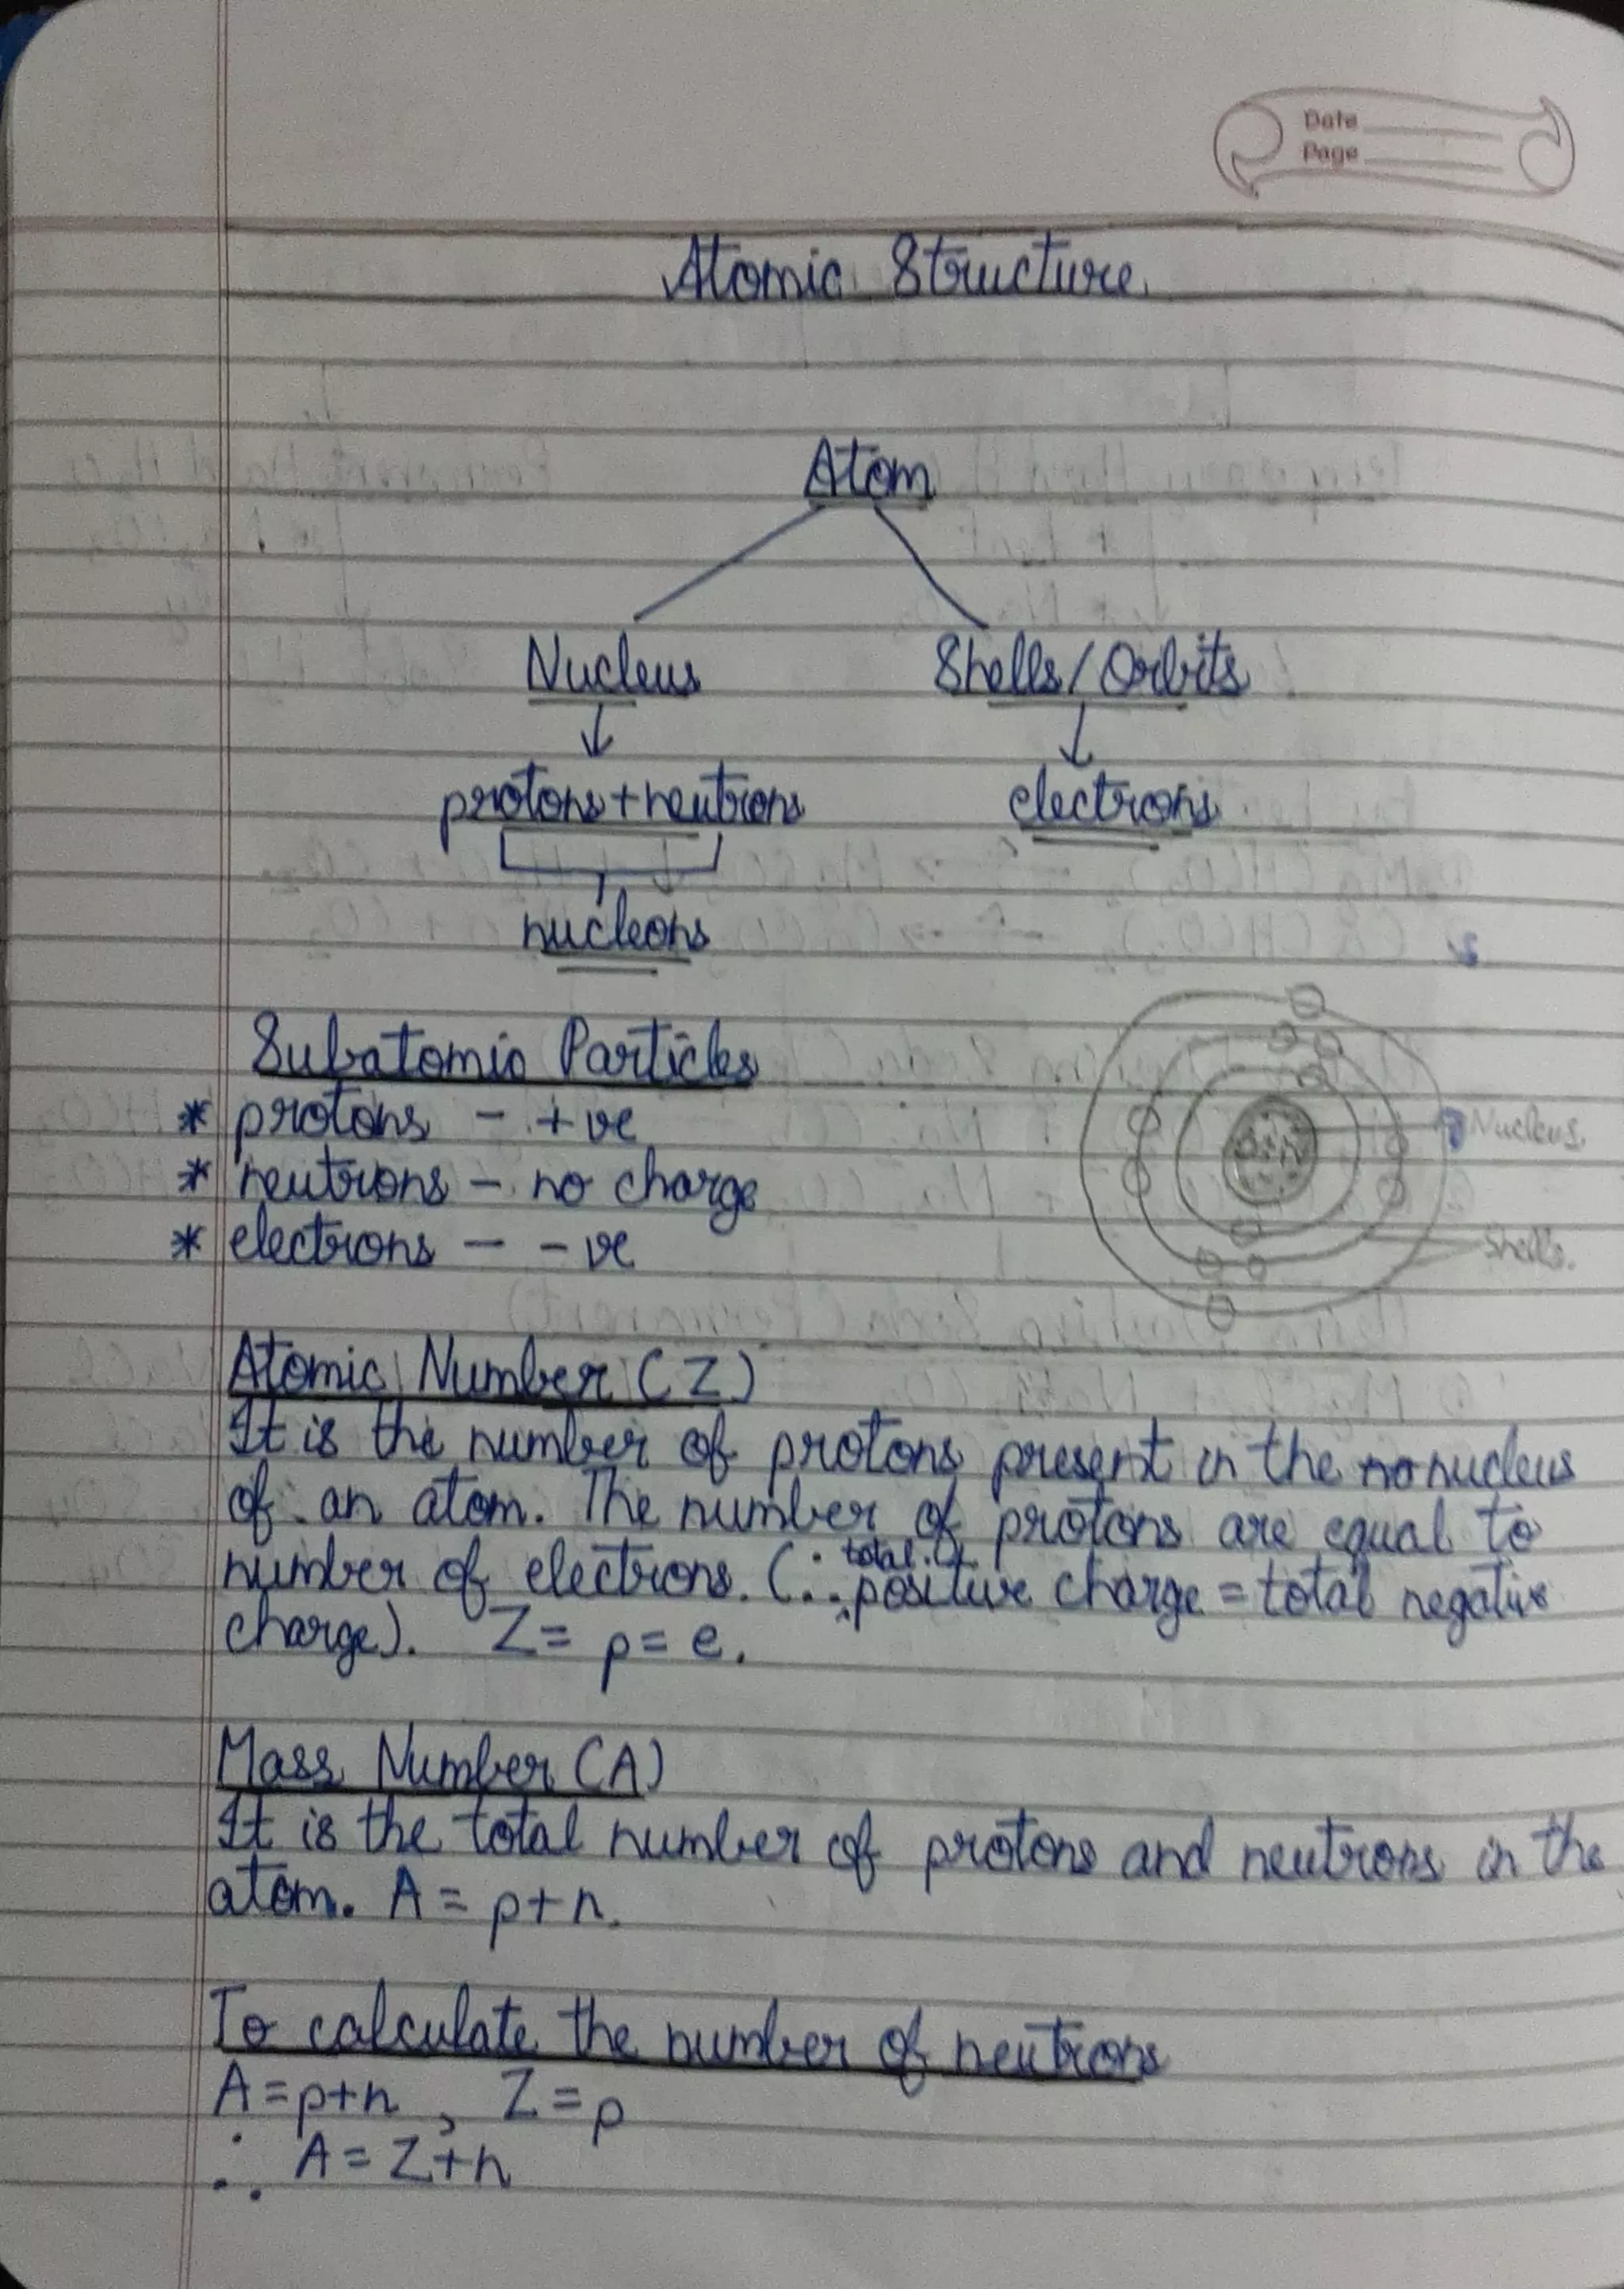 Date
Page
Atomic Structure.
Atom
Nucleus Shells/Orbits
protons+neutrons electrons
nucleons
Subatomic Particles
* protons - +ve
* neutrons - no charge
* electrons - -ve
Nucleus.
Shells.
Atomic Number (Z)
It is the number of protons present in the nucleus
of an atom. The number of protons are equal to
number of electrons. (∵ total positive charge = total negative
charge). Z = p = e.
Mass Number (A)
It is the total number of protons and neutrons in the
atom. A = p+n.
To calculate the number of neutrons
A = p+n , Z = p
∴ A = Z+n